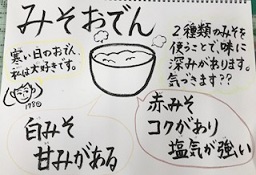 みそおでん
寒い日のおでん、
私は大好きです。
2種類のみそを
使うことで、味に
深みがあります。
気づきます??
白みそ
甘みがある
赤みそ
コクがあり
塩気が強い